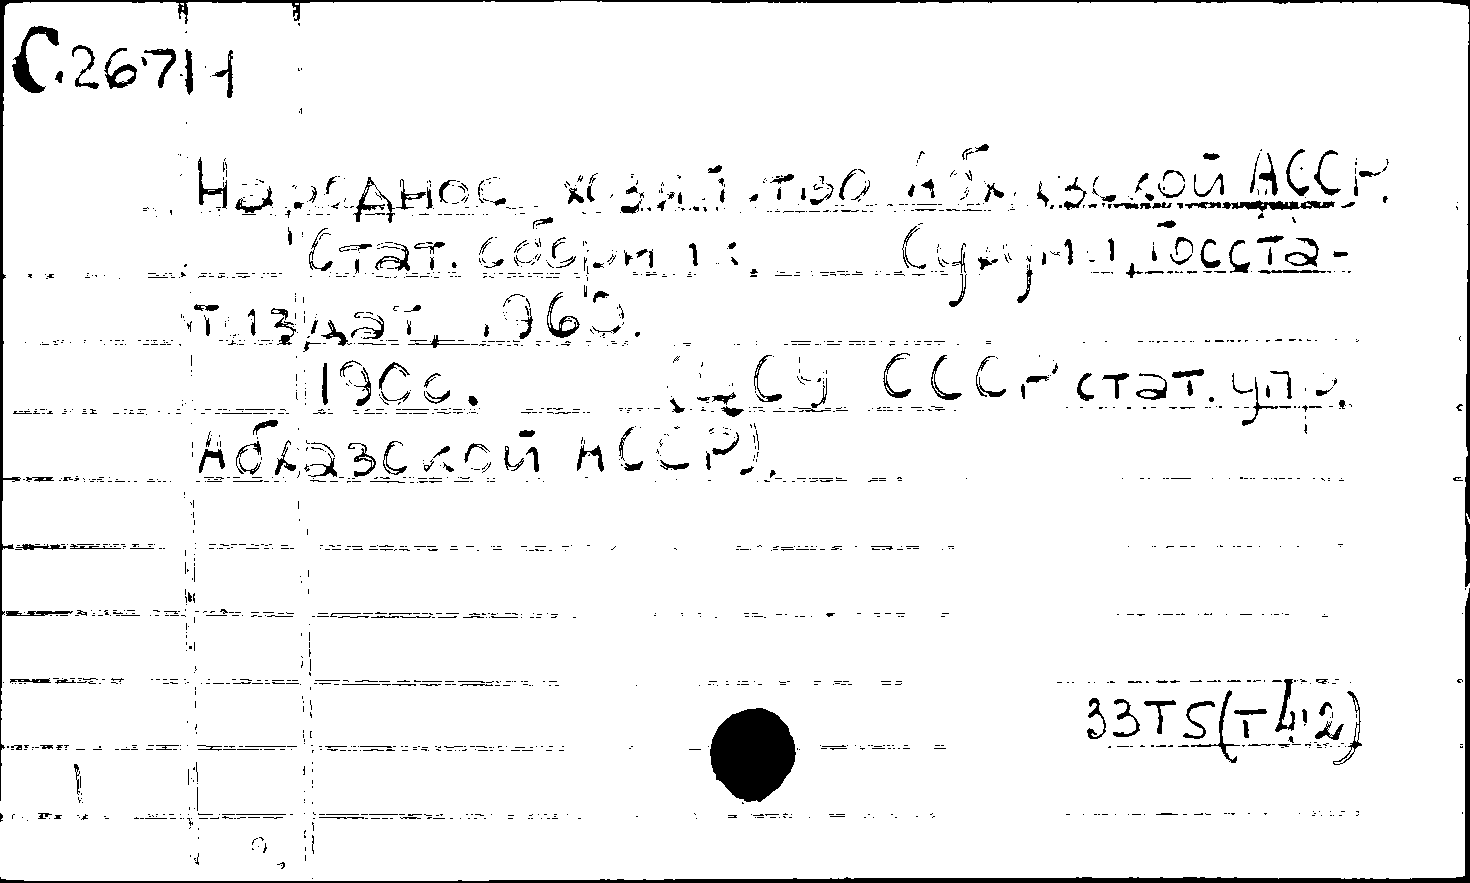 С.26711
Народное хозяйство Абхазской АССР.
Стат. сборник. Сухуми, Госста-
тиздат, 1960.
190с. (ЦСУ СССР стат. упр.
Абхазской АССР).
33Т5(Т42)